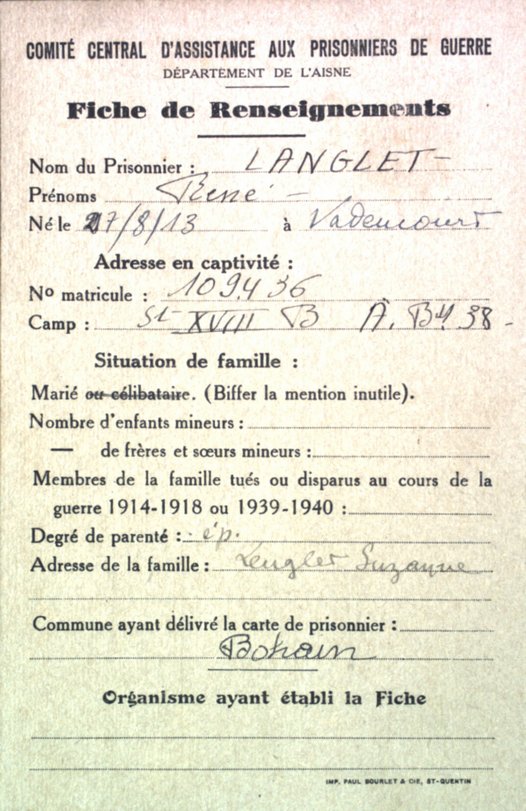 COMITÉ CENTRAL D'ASSISTANCE AUX PRISONNIERS DE GUERRE
DÉPARTEMENT DE L'AISNE
Fiche de Renseignements
Nom du Prisonnier : LANGLET-
Prénoms René -
Né le 27/8/13 à Vadencourt
Adresse en captivité :
No matricule : 109436
Camp : St XVIII B A. BM 38 -
Situation de famille :
Marié ou célibataire. (Biffer la mention inutile).
Nombre d'enfants mineurs :
— de frères et sœurs mineurs :
Membres de la famille tués ou disparus au cours de la
guerre 1914-1918 ou 1939-1940 :
Degré de parenté : ép.
Adresse de la famille : Suzanne
Commune ayant délivré la carte de prisonnier :
Bohain
Organisme ayant établi la Fiche
IMP. PAUL BOURLET & CIE, ST-QUENTIN